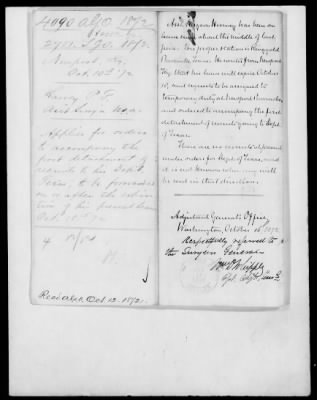 4090 A.G.O. 1872
2791 S.G.O. 1872.
Newport, Ky.
Oct. 10th '72
Harvey P. F.
Asst Surg'n U.S.A.
Applies for orders
to accompany the
first detachment of
recruits to his Dep't
Texas, to be furnished
on or after the expira-
tion of his present leave
Oct. 15th 72
Rec'd A.G.O. Oct 12. 1872.
Asst. Surgeon Harvey has been on
leave since about the middle of last
June. His proper station is Ringgold
Barracks, Texas. He writes from Newport
Ky. that his leave will expire October
15, and requests to be assigned to
temporary duty at Newport Barracks
and ordered to accompany the first
detachment of recruits going to Dept.
of Texas.
There are no recruits at present
under orders for Dept of Texas, and
it is not known when any will
be sent in that direction.
Adjutant General's Office,
Washington, October 15, 1872.
Respectfully referred to
the Surgeon General.
Asst. Adjt. Gen'l.